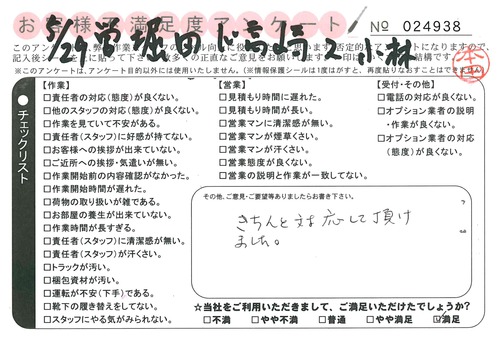 お客様満足度アンケート
No 024938
5/29 営 堀田 ド 高崎 ス 小林
このアンケートは、弊
記入後シールを
ご意見をお願いします
※このアンケートは、アンケート目的以外には使用いたしません。(※情報保護シールは1度はがすと、再度貼りなおすことはできません
本
チェックリスト
【作業】
□責任者の対応(態度)が良くない。
□他のスタッフの対応(態度)が良くない。
□作業を見ていて不安がある。
□責任者(スタッフ)に好感が持てない。
□お客様への挨拶が出来ていない。
□ご近所への挨拶・気遣いが無い。
□作業開始前の内容確認がなかった。
□作業開始時間が遅れた。
□荷物の取り扱いが雑である。
□お部屋の養生が出来ていない。
□作業時間が長すぎる。
□責任者(スタッフ)に清潔感が無い。
□責任者(スタッフ)が汗くさい。
□トラックが汚い。
□梱包資材が汚い。
□運転が不安(下手)である。
□靴下の履き替えをしてない。
□スタッフにやる気がみられない。
【営業】
□見積もり時間に遅れた。
□見積もり時間が長い。
□営業マンに清潔感が無い。
□営業マンが煙草くさい。
□営業マンが汗くさい。
□営業態度が良くない。
□営業の説明と作業が一致してない。
【受付・その他】
□電話の対応が良くない。
□オプション業者の説明
・作業が良くない。
□オプション業者の対応
(態度)が良くない。
その他、ご意見・ご要望等ありましたらお書き下さい。
きちんと対応して頂け
ました。
☆当社をご利用いただきまして、ご満足いただけたでしょうか?
□不満 □やや不満 □普通 □やや満足 ☑満足